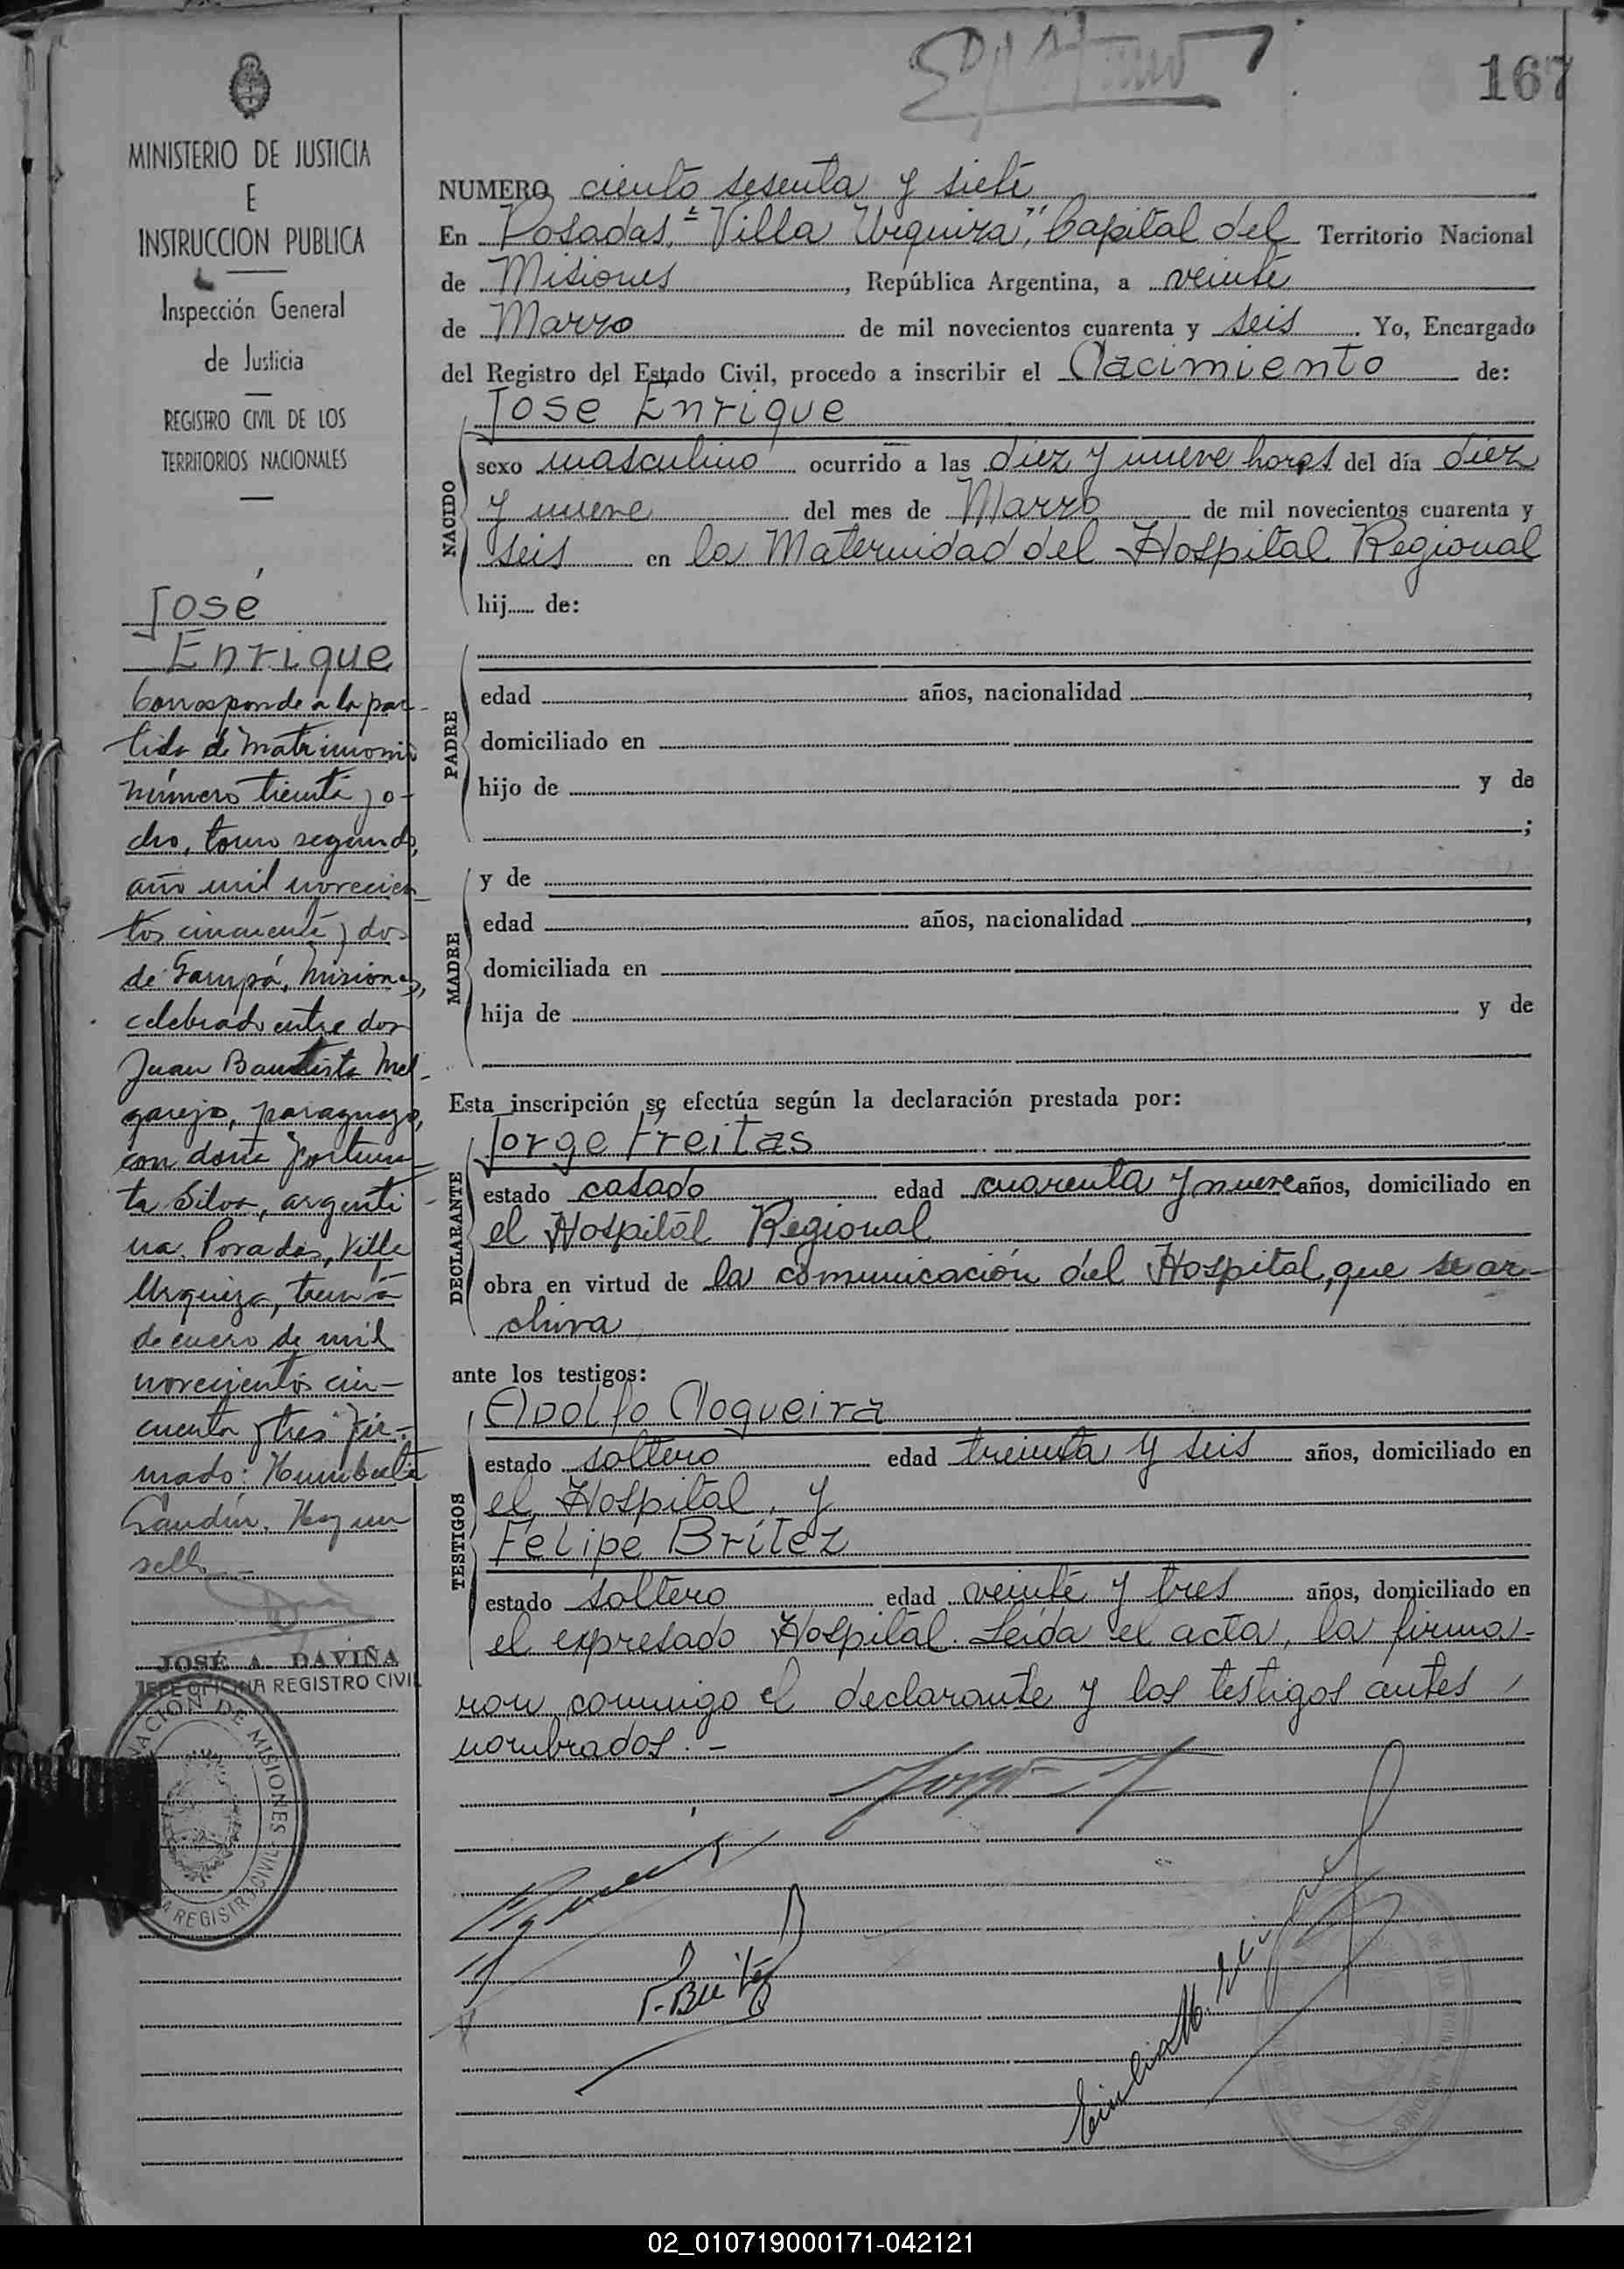 167
MINISTERIO DE JUSTICIA
E
INSTRUCCION PUBLICA
Inspección General
de Justicia
REGISTRO CIVIL DE LOS
TERRITORIOS NACIONALES
José
Enrique
Corresponde a la par-
tida de matrimonio
número treinta y o-
cho, tomo segundo,
año mil novecien-
tos cincuenta y dos
de Garupá, Misiones,
celebrado entre don
Juan Bautista Mel-
garejo, paraguayo,
con doña Fortuna-
ta Silva, argenti-
na. Posadas, Villa
Urquiza, treinta
de enero de mil
novecientos cin-
cuenta y tres. Fir-
mado: Humberto
Gandín. Hay un
sello.-
JOSÉ A. DAVIÑA
JEFE OFICINA REGISTRO CIVIL
NACION DE MISIONES
REGISTRO CIVIL
NUMERO ciento sesenta y siete
En Posadas, "Villa Urquiza", Capital del Territorio Nacional
de Misiones, República Argentina, a veinte
de Marzo de mil novecientos cuarenta y seis. Yo, Encargado
del Registro del Estado Civil, procedo a inscribir el Nacimiento de:
José Enrique
NACIDO
sexo masculino ocurrido a las diez y nueve horas del día diez
y nueve del mes de Marzo de mil novecientos cuarenta y
seis en la Maternidad del Hospital Regional
hij..... de:
PADRE
edad años, nacionalidad ,
domiciliado en
hijo de y de
;
MADRE
y de
edad años, nacionalidad ,
domiciliada en
hija de y de
Esta inscripción se efectúa según la declaración prestada por:
Jorge Freitas
DECLARANTE
estado casado edad cuarenta y nueve años, domiciliado en
el Hospital Regional
obra en virtud de la comunicación del Hospital, que se ar-
chiva
ante los testigos:
Adolfo Nogueira
TESTIGOS
estado soltero edad treinta y seis años, domiciliado en
el Hospital, y
Felipe Britez
estado soltero edad veinte y tres años, domiciliado en
el expresado Hospital. Leída el acta, la firma-
ron conmigo el declarante y los testigos antes
nombrados.-
F. Britez
02_010719000171-042121